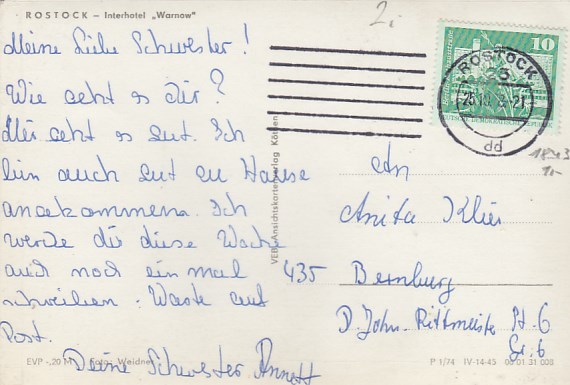 ROSTOCK – Interhotel „Warnow"
2.-
Meine liebe Schwester!
Wie geht es dir?
Mir geht es gut. Ich
bin auch gut zu Hause
angekommen. Ich
werde dir diese Woche
auch noch ein mal
schreiben. Warte auf
Post.
Deine Schwester Annett
EVP -,20 M Foto: Weidner
VEB Ansichtskartenverlag Köthen
10
ROSTOCK
23
25.10.
dd
1-
An
Anita Klier
435 Bernburg
D. John-Rittmeister Pt. 6
Gr. 6
P 1/74 IV-14-45 00 01 31 008